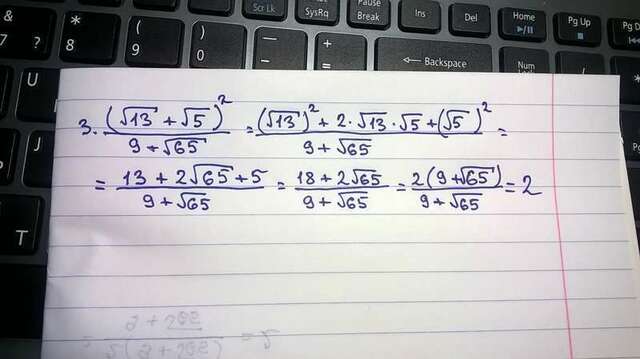 Scr Lk
SysRq
Pause
Break
Ins
Del
Home
Pg Up
Pg Dn
&
7 ?
*
8
(
9
)
0
_
+
=
Backspace
Num
U
I
T
3. (√13 + √5)² / (9 + √65) = ((√13)² + 2·√13·√5 + (√5)²) / (9 + √65) =
= (13 + 2√65 + 5) / (9 + √65) = (18 + 2√65) / (9 + √65) = 2(9 + √65) / (9 + √65) = 2